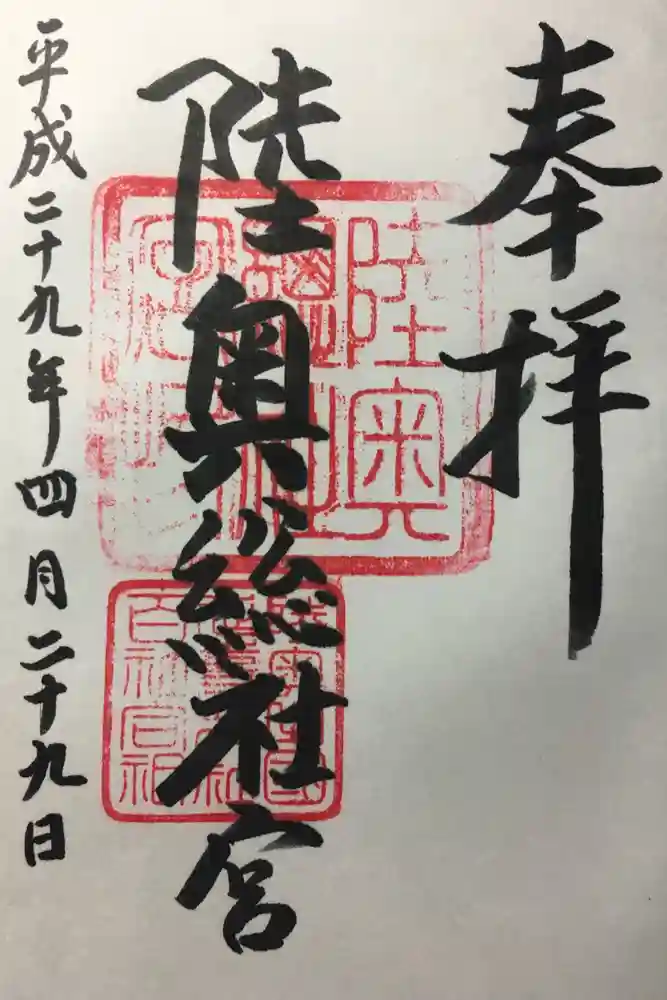 奉拝
陸奥総社宮
平成二十九年四月二十九日
陸奥